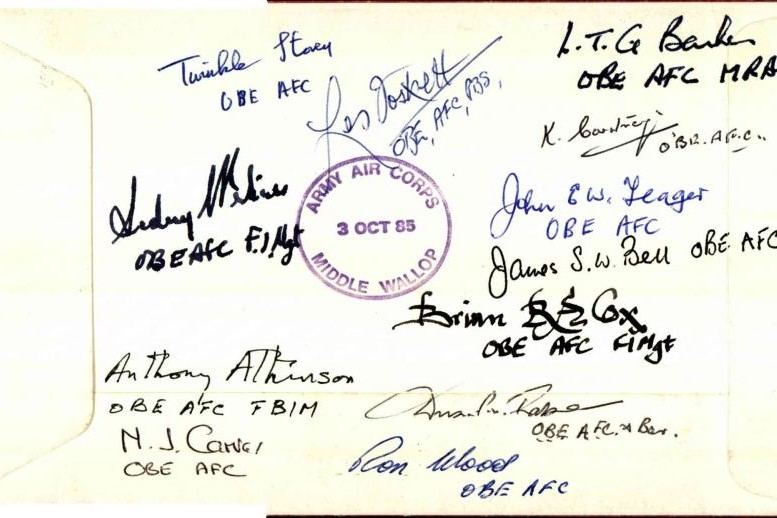 Twinkle Storey
OBE AFC
Les
OBE, AFC,
L.T.G Barker
OBE AFC MRA
K.
OBE. AFC.
Sidney
OBE AFC F.I.Mgt
ARMY AIR CORPS
3 OCT 85
MIDDLE WALLOP
John E W. Teager
OBE AFC
James S.W. Bell OBE AFC
Brian Cox
OBE AFC FIMgt
Anthony Atkinson
OBE AFC FBIM
N. J. Carver
OBE AFC
OBE AFC & Bar.
Ron Wood
OBE AFC